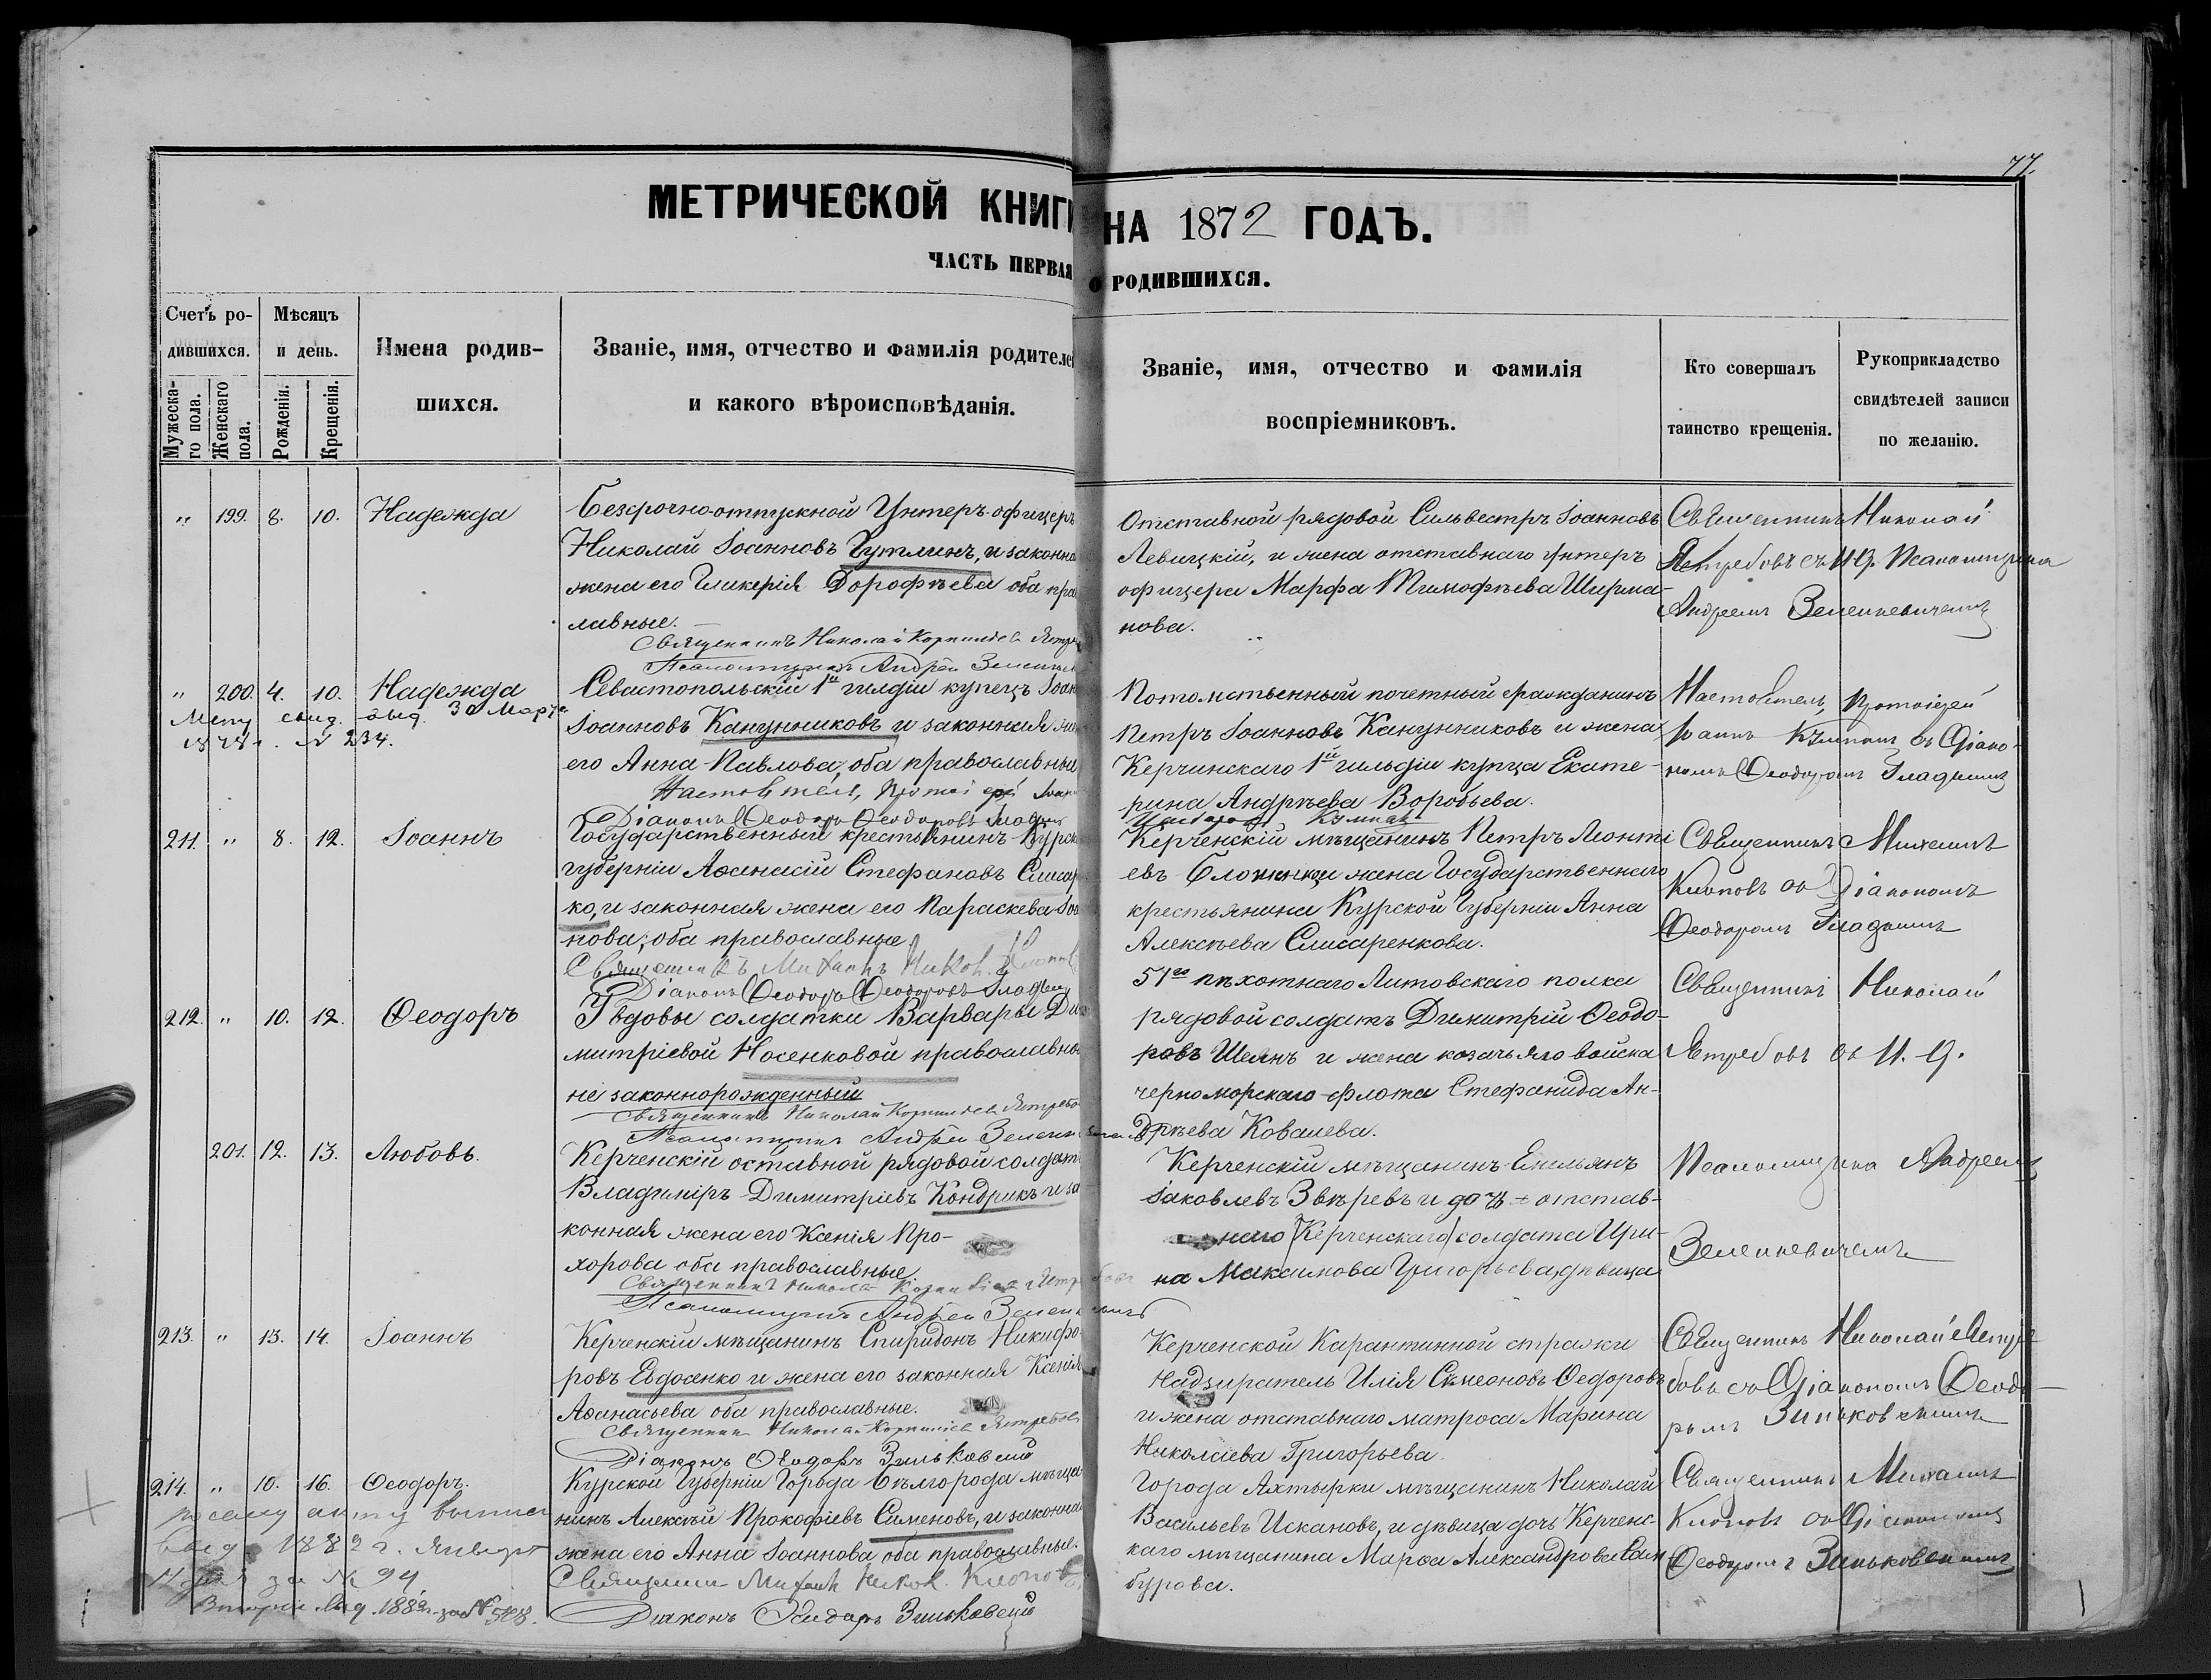 77.
МЕТРИЧЕСКОЙ КНИГИ НА 1872 ГОДЪ.
ЧАСТЬ ПЕРВАЯ О РОДИВШИХСЯ.
Счетъ родившихся.
Мужескаго пола.
Женскаго пола.
Мѣсяцъ и день.
Рожденія.
Крещенія.
Имена родившихся.
Званіе, имя, отчество и фамилія родителей
и какого вѣроисповѣданія.
Званіе, имя, отчество и фамилія
воспріемниковъ.
Кто совершалъ
таинство крещенія.
Рукоприкладство
свидѣтелей записи
по желанію.
„ 199. 8. 10. Надежда
Безсрочно-отпускной Унтеръ-офицеръ
Николай Іоанновъ Гутлинъ, и законна
жена его Гликерія Дорофѣева оба пра
лавные.
Священникъ Николай Корнильевъ
Псаломщикъ Андрей
Отставной рядовой Сильвестръ Іоанновъ
Левицкій, и жена отставнаго унтеръ
офицера Марфа Тимофѣева Ширма-
нова.
Священникъ Николай
Ястребовъ съ И. Д. Псаломщика
Андреемъ Зеленкевичемъ
„ 200. 4. 10. Надежда
Мет. свид. выд. 30 Марта
№ 234.
Севастопольскій 1й гилдіи купецъ Іоан
Іоанновъ Канунниковъ и законная же
его Анна Павлова, оба православные
Настоятель, Протоіерей Іоаннъ
Діаконъ Ѳеодоръ Ѳеодоровъ Гладкій
Потомственный почетный гражданинъ
Петръ Іоанновъ Канунниковъ и жена
Керчинскаго 1й гильдіи купца Екате-
рина Андрѣева Воробьева.
Настоятель, Протоіерей
Іоаннъ Кумпанъ съ Діако-
номъ Ѳеодоромъ Гладкимъ
211. „ 8. 12. Іоаннъ
Государственный крестьянинъ Курск
губерніи Аѳанасій Стефановъ Слисар
ко, и законная жена его Параскева Іоа
нова; оба православные
Священникъ Михаилъ Никол. Клоповъ
Діаконъ Ѳеодоръ Ѳеодоровъ Гладкій
Керченскій мѣщанинъ Петръ Леонті
евъ и жена Государственнаго
крестьянина Курской Губерніи Анна
Алексѣева Слисаренкова.
Священникъ Михаилъ
Клоповъ съ Діакономъ
Ѳеодоромъ Гладкимъ
212. „ 10. 12. Ѳеодоръ
У вдовы солдатки Варвары Ди
митріевой Носенковой православно
не законнорожденный
Священникъ Николай Корнильевъ Ястребо
Псаломщикъ Андрей Зеленкевичъ
51го пѣхотнаго Литовскаго полка
рядовой солдатъ Димитрій Ѳеодо-
ровъ Шеянъ и жена козачьяго войска
черноморскаго флота Стефанида Ан-
дрѣева Ковалева.
Священникъ Николай
Ястребовъ съ И. Д.
201. 12. 13. Любовь.
Керченскій оставной рядовой солдатъ
Владиміръ Димитріевъ Кондрикъ и за
конная жена его Ксенія Про-
хорова оба православные
Священникъ Николай
Псаломщикъ Андрей Зеленкевичъ
Керченскій мѣщанинъ Емельянъ
Іаковлевъ Звѣревъ и дочь отстав-
наго Керченскаго солдата Ири-
на Максимова Григорьева, дѣвица
Псаломщика Андреемъ
Зеленкевичемъ
213. „ 13. 14. Іоаннъ
Керченскій мѣщанинъ Спиридонъ Никифо-
ровъ Евдосенко и жена его законная Ксенія
Аѳанасьева оба православные.
Священникъ Николай Корнильевъ Ястребовъ
Діаконъ Ѳеодоръ Зиньковскій
Керченской Карантинной стражи
надзиратель Илія Симеоновъ Ѳедоровъ
и жена отставнаго матроса Марина
Николаева Григорьева.
Священникъ Николай Ястре
бовъ съ Діакономъ Ѳеодо-
ромъ Зиньковскимъ
214. „ 10. 16. Ѳеодоръ.
По сему акту
выд. 1882 г. Января
за № 94
выд. 1882 г. за №
Курской Губерніи Города Бѣлгорода мѣща
нинъ Алексѣй Прокофіевъ Сименовъ, и законна
жена его Анна Іоаннова, оба православные.
Священникъ Михаилъ Никол. Клоповъ
Діаконъ Ѳеодоръ Зиньковскій
Города Ахтырки мѣщанинъ Николай
Васильевъ Искановъ, и дѣвица дочь Керченс-
каго мѣщанина Марѳа Александрова Сам-
бурова.
Священникъ Михаилъ
Клоповъ съ Діакономъ
Ѳеодоромъ Зиньковскимъ